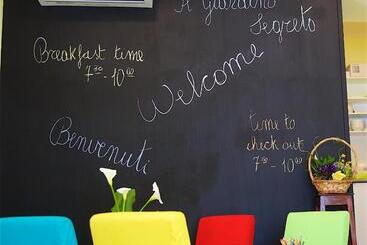 Il Giardino
Segreto
Breakfast time
7³⁰ - 10⁰⁰
Welcome
Benvenuti
time to
check out
7³⁰ - 10⁰⁰